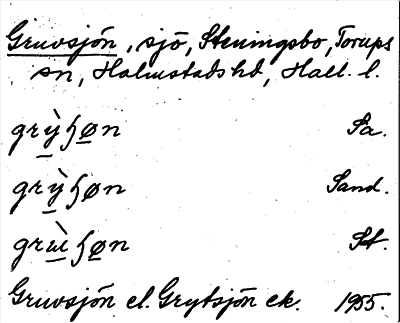 Gruvsjön, sjö, Steningsbo, Torups
sn, Halmstads hd, Hall. l.
grỳɧøn Sa.
grỳɧøn Sand.
grɯ̀ɧøn St.
Gruvsjön el. Grytsjön ek. 1955.